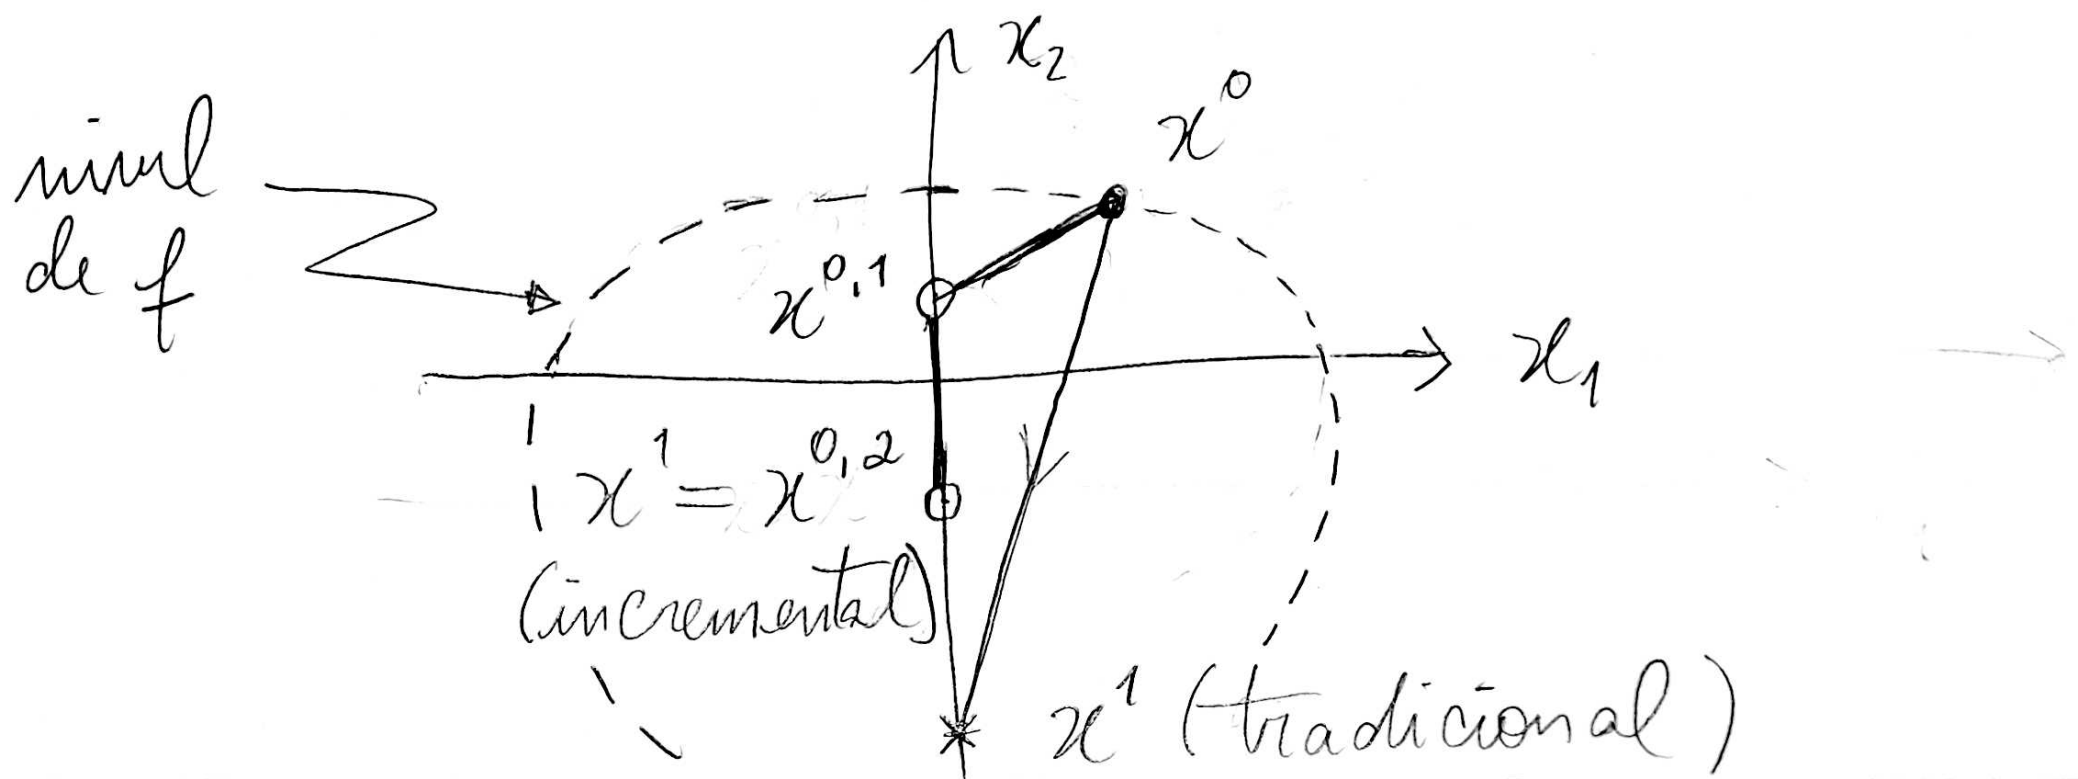 x₂
x⁰
nível
de f
x⁰,¹
x₁
x¹ = x⁰,²
(incremental)
x¹ (tradicional)